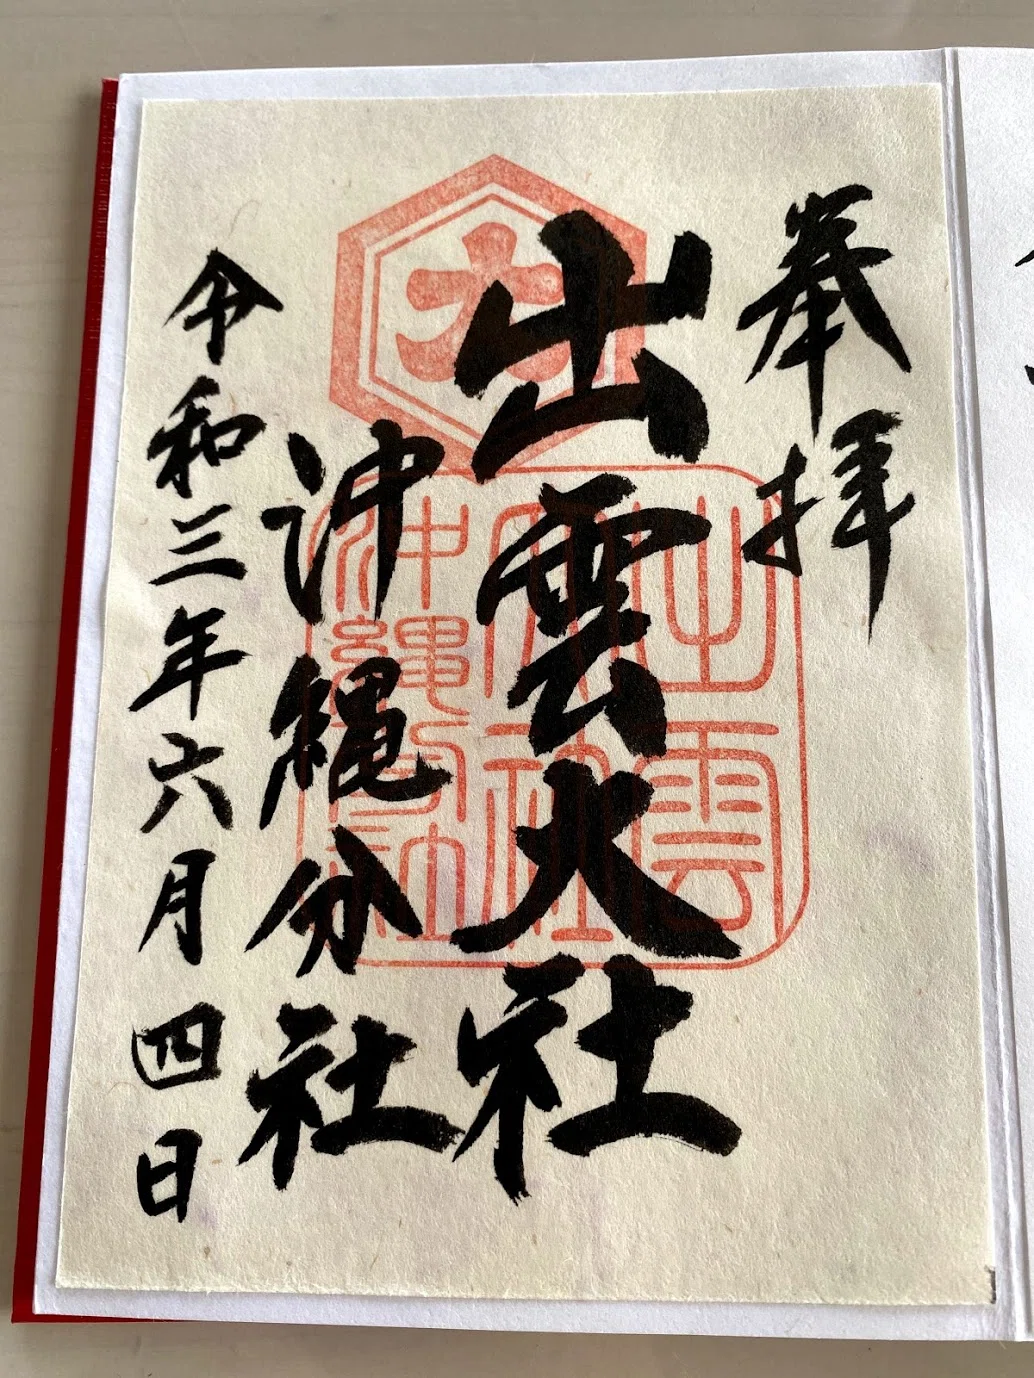 奉拝
出雲大社
沖縄分社
令和三年六月四日
大
出雲
大社
沖縄分社